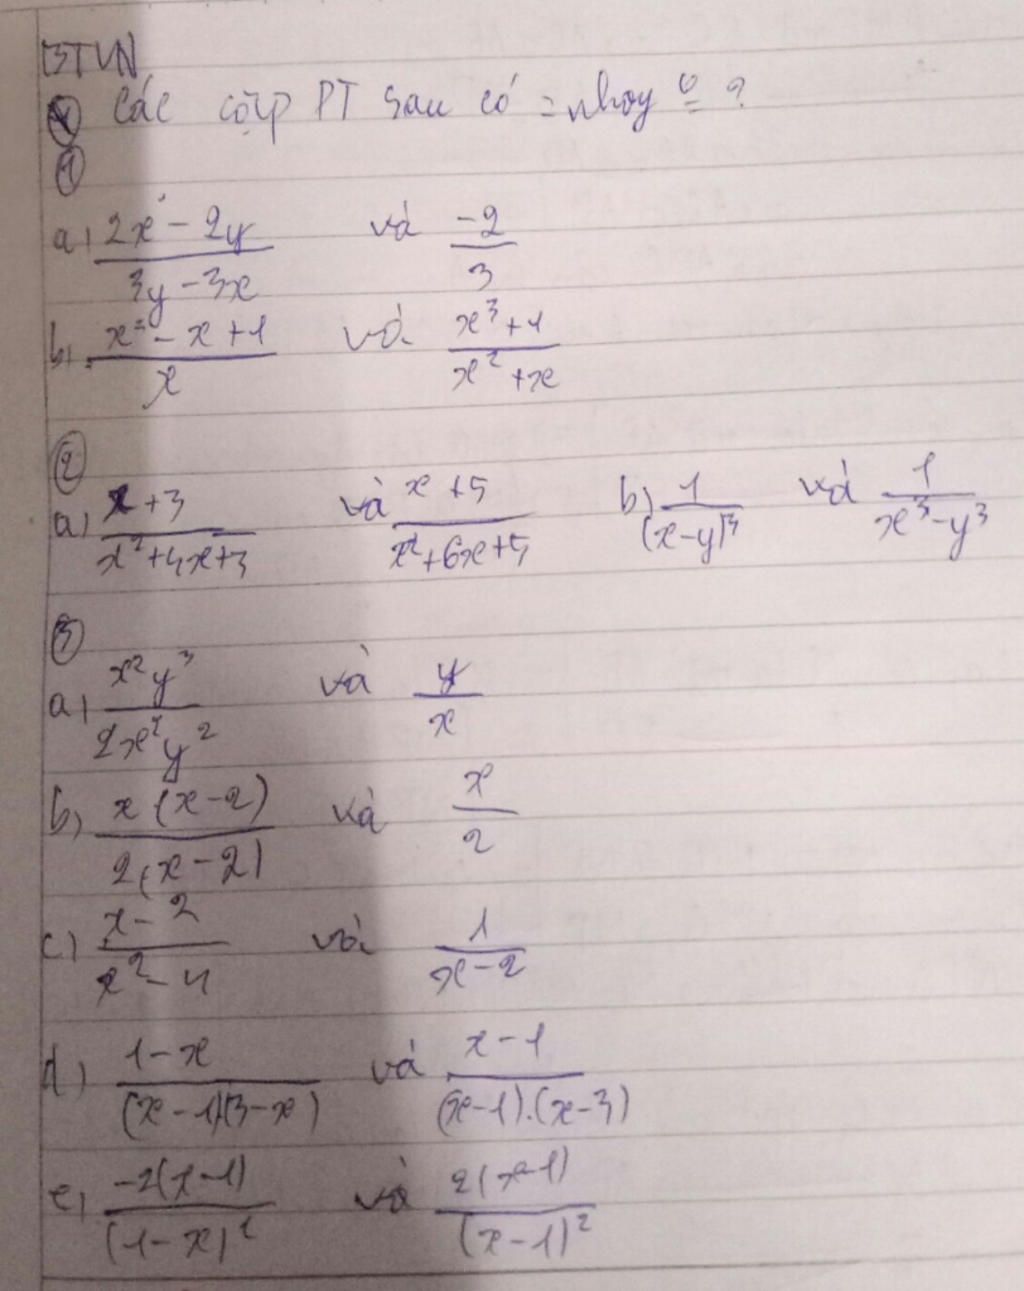 BTVN
Các cặp PT sau có = nhay 0 = ?
①
a) (2x - 2y)/(3y - 3x) và -2/3
b) (x² - x + 1)/x và (x³ + 1)/(x² + x)
②
a) (x + 3)/(x² + 4x + 3) và (x + 5)/(x² + 6x + 5) b) 1/(x - y)³ và 1/(x³ - y³)
③
a) x²y³/2x²y² và y/x
b) x(x - 2)/2(x - 2) và x/2
c) (x - 2)/(x² - 4) và 1/(x - 2)
d) (1 - x)/(x - 1)(3 - x) và (x - 1)/(x - 1).(x - 3)
e) -2(x - 1)/(1 - x)² và 2(x - 1)/(x - 1)²